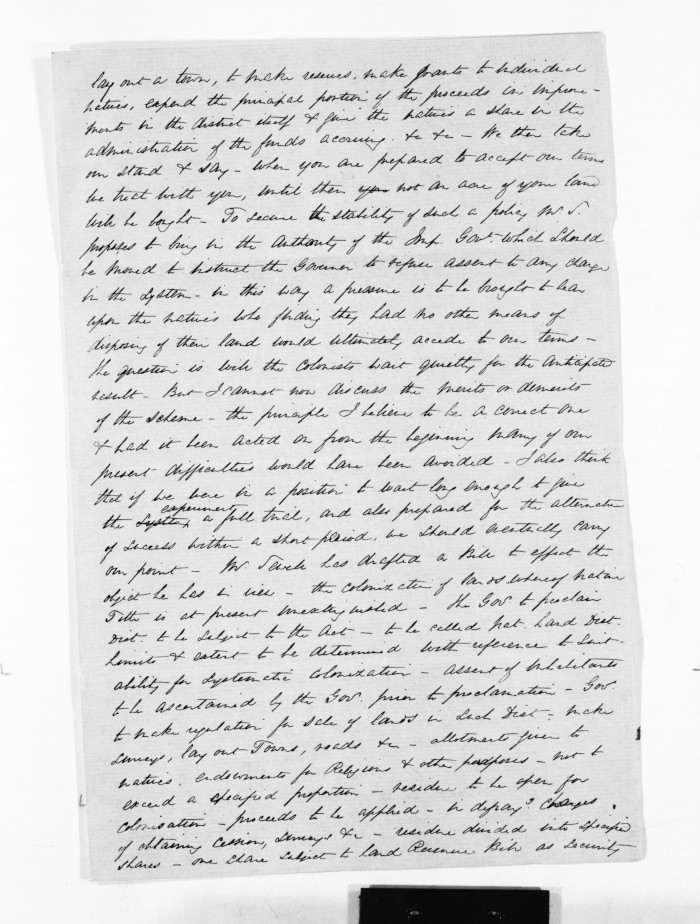 lay out a town, to make reserves, make grants to individual
natives, expend the principal portion of the proceeds in improve-
ments in the district itself & give the natives a share in the
administration of the funds accruing. &c &c - We then take
our stand & say - when you are prepared to accept our terms
we treat with you, until then not an acre of your land
will be bought - To secure the stability of such a policy Mr. S.
proposes to bring in the Authority of the Imp. Govt. which should
be moved to instruct the Governor to refuse assent to any change
in the system - in this way a pressure is to be brought to bear
upon the natives who finding they had no other means of
disposing of their land would ultimately accede to our terms -
the question is will the colonists wait quietly for the anticipated
result - But I cannot now discuss the merits or demerits
of the scheme - the principle I believe to be a correct one
& had it been acted on from the beginning many of our
present difficulties would have been avoided - I also think
that if we were in a position to wait long enough to give
the experiment a full trial, and also prepared for the alternative
of success within a short period, we should eventually carry
our point - Mr. Sewell has drafted a Bill to effect the
object he has in view - the colonization of lands whereof Native
Title is at present unextinguished - The Gov. to proclaim
Dist. to be subject to the Act - to be called Nat. Land Dist.
Limits & extent to be determined with reference to suit-
ability for systematic colonization - assent of Inhabitants
to be ascertained by the Gov. prior to proclamation - Gov.
to make regulation for sale of lands in such Dist. - make
surveys, lay out Towns, roads &c - allotments given to
natives, endowments for Religious & other purposes - not to
exceed a specified proportion - residue to be open for
colonisation - proceeds to be applied - in defrayg. charges
of obtaining cession, surveys &c - residue divided into specified
shares - one share subject to Land Revenue Bill as security